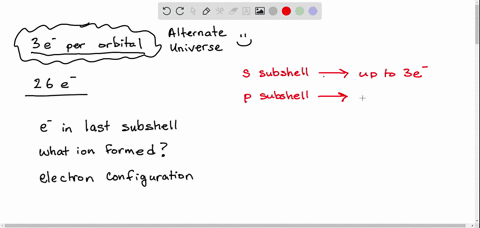 3 e⁻ per orbital
Alternate
Universe
26 e⁻
e⁻ in last subshell
what ion formed?
electron configuration
s subshell → up to 3e⁻
p subshell →